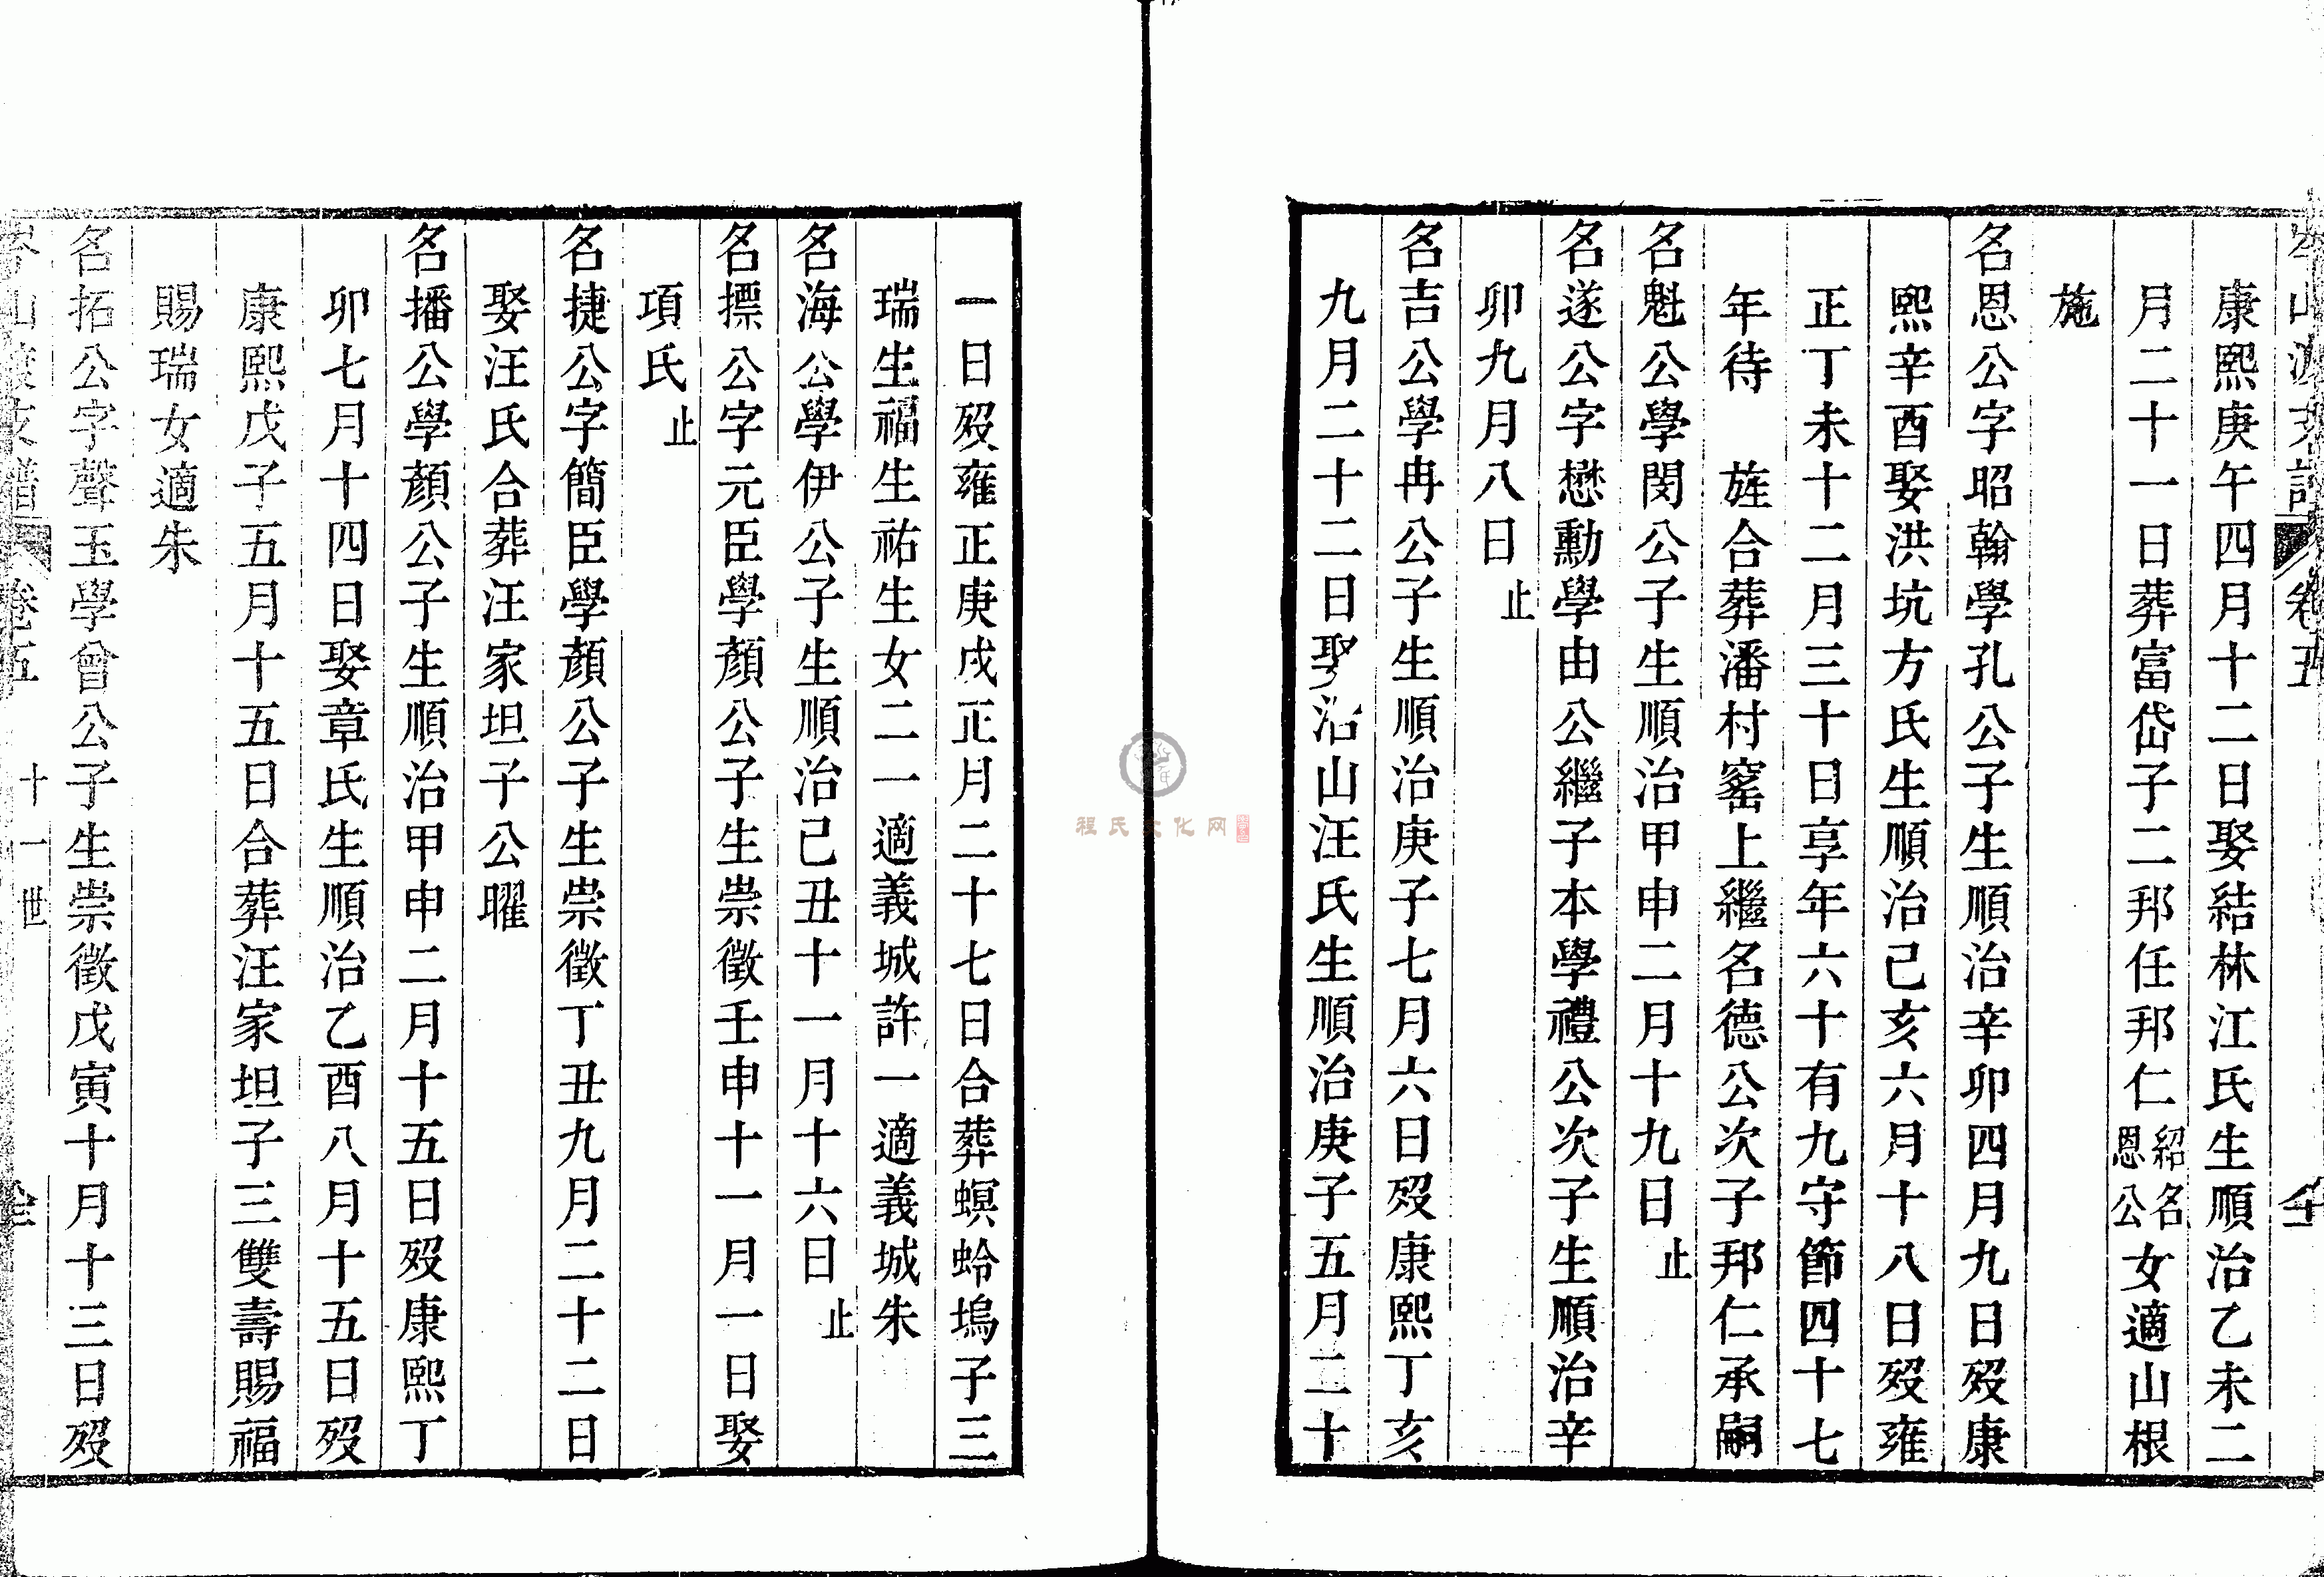 康熙庚午四月十二日娶結林江氏生順治乙未二
月二十一日葬富岱子二邦任邦仁紹名恩公女適山根
施
名恩公字昭翰學孔公子生順治辛卯四月九日歿康
熙辛酉娶洪坑方氏生順治己亥六月十八日歿雍
正丁未十二月三十日享年六十有九守節四十七
年待 旌合葬潘村窰上繼名德公次子邦仁承嗣
名魁公學閔公子生順治甲申二月十九日止
名遂公字懋勳學由公繼子本學禮公次子生順治辛
卯九月八日止
名吉公學冉公子生順治庚子七月六日歿康熙丁亥
九月二十二日娶沿山汪氏生順治庚子五月二十
一日歿雍正庚戌正月二十七日合葬螟蛉塢子三
瑞生福生祐生女二一適義城許一適義城朱
名海公學伊公子生順治己丑十一月十六日止
名摽公字元臣學顏公子生崇徵壬申十一月一日娶
項氏止
名捷公字簡臣學顏公子生崇徵丁丑九月二十二日
娶汪氏合葬汪家坦子公曜
名播公學顏公子生順治甲申二月十五日歿康熙丁
卯七月十四日娶章氏生順治乙酉八月十五日歿
康熙戊子五月十五日合葬汪家坦子三雙壽賜福
賜瑞女適朱
名拓公字聲玉學曾公子生崇徵戊寅十月十三日歿
卷五 十一世
程氏文化网